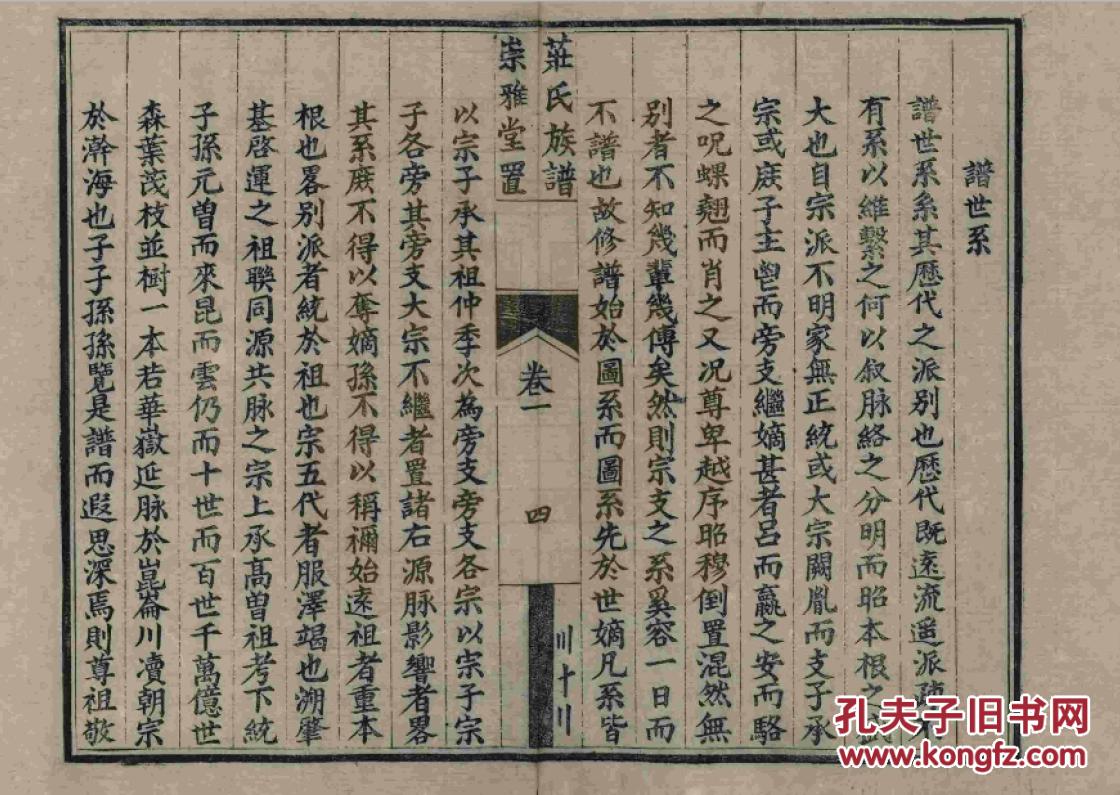 譜世系
譜世系系其歷代之派別也歷代既遠流遥派
有系以維繫之何以叙脉絡之分明而昭本根之
大也自宗派不明家無正統或大宗闕胤而支子承
宗或庻子主鬯而旁支繼嫡甚者呂而嬴之安而駱
之呪螺翹而肖之又况尊卑越序昭穆倒置混然無
別者不知幾軰幾傳矣然則宗支之系奚容一日而
不譜也故修譜始於圖系而圖系先於世嫡凡系皆
莊氏族譜
崇雅堂置
卷一
四
川十川
以宗子承其祖仲季次為旁支旁支各宗以宗子宗
子各旁其旁支大宗不繼者置諸右源脉影響者畧
其系庻不得以奪嫡孫不得以稱禰始遠祖者重本
根也畧别派者統於祖也宗五代者服澤竭也溯肇
基啓運之祖聯同源共脉之宗上承高曽祖考下統
子孫元曽而來昆而雲仍而十世而百世千萬億世
森葉茂枝並樹一本若華嶽延脉於崑崙川瀆朝宗
於澥海也子子孫孫覽是譜而遐思深焉則尊祖敬
孔夫子旧书网
www.kongfz.com